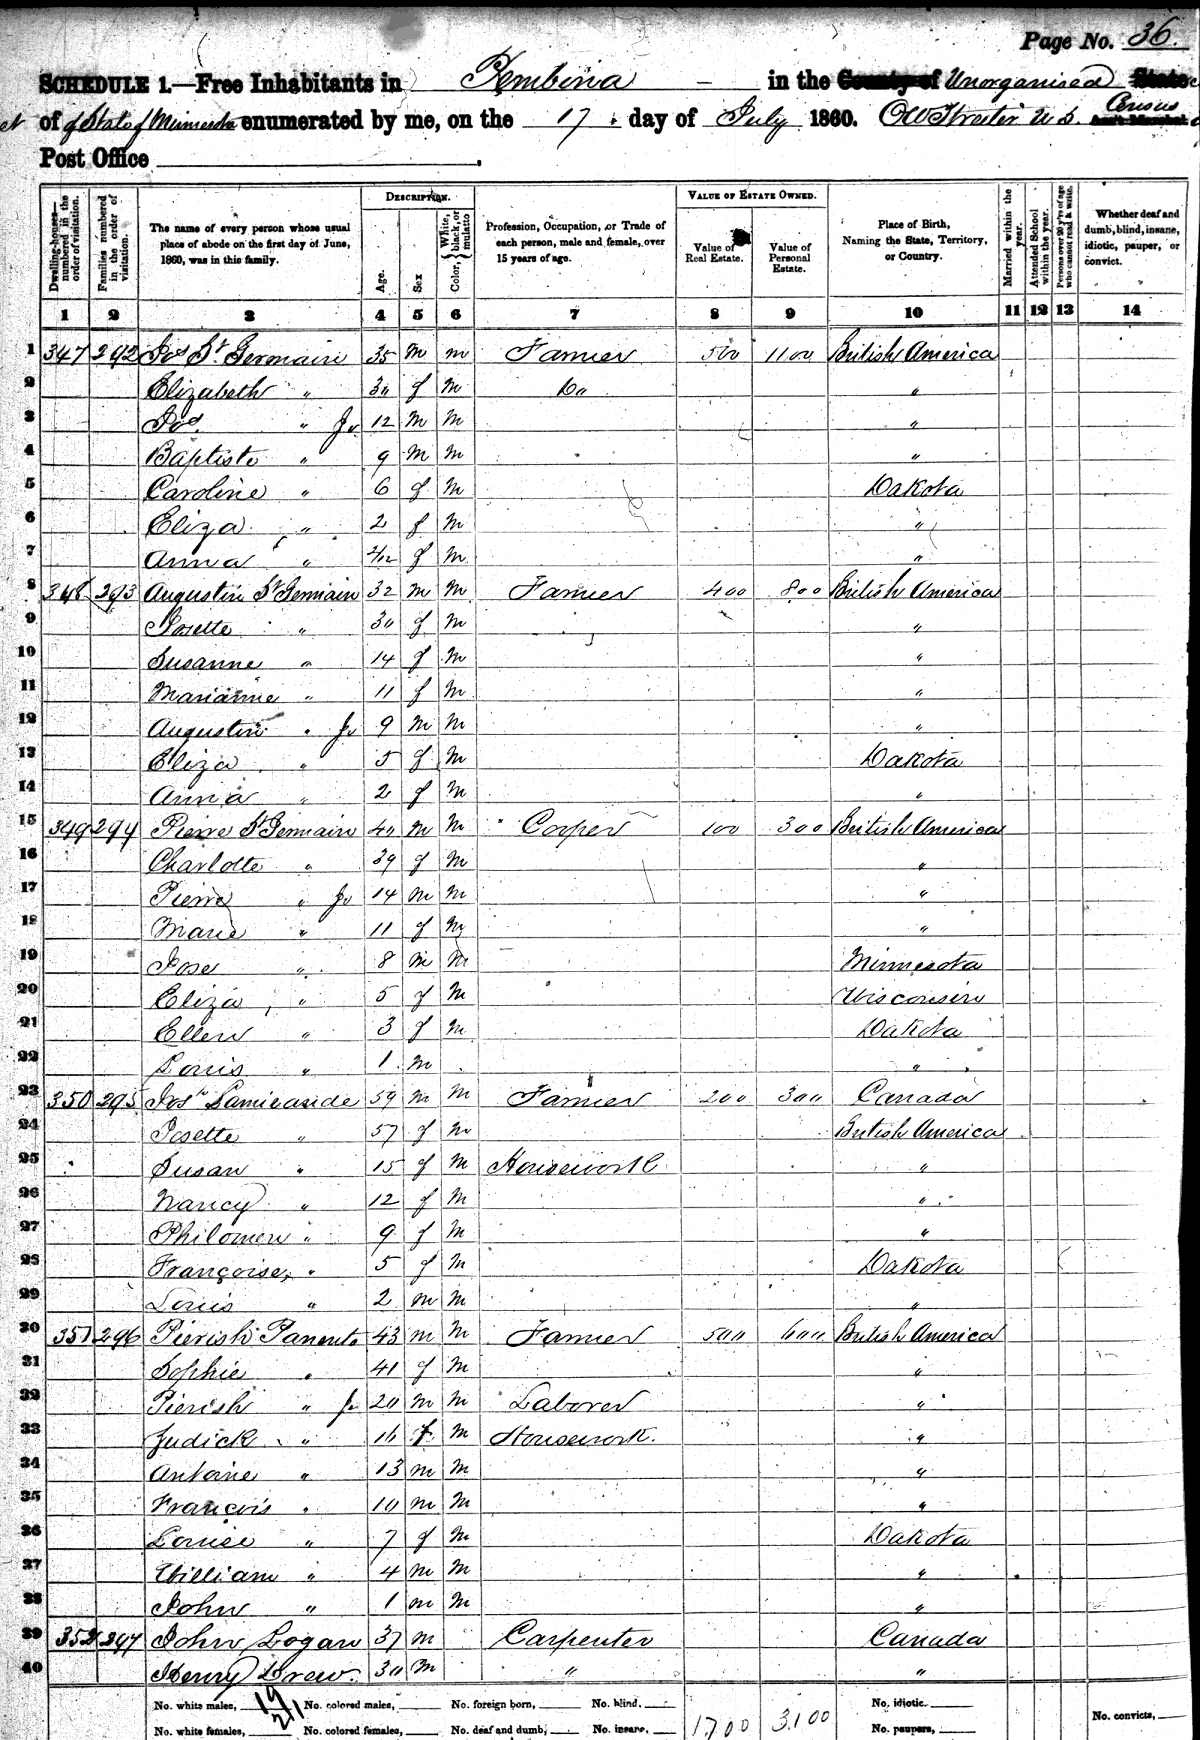 Page No. 36.
SCHEDULE 1.—Free Inhabitants in Pembina in the County of Unorganised State
of State of Minnesota enumerated by me, on the 17 day of July 1860. U.S. Census
Post Office
Dwelling-houses—numbered in the order of visitation.
Families numbered in the order of visitation.
The name of every person whose usual place of abode on the first day of June, 1860, was in this family.
DESCRIPTION.
Age.
Sex
Color, { White, black, or mulatto
Profession, Occupation, or Trade of each person, male and female, over 15 years of age.
VALUE OF ESTATE OWNED.
Value of Real Estate.
Value of Personal Estate.
Place of Birth, Naming the State, Territory, or Country.
Married within the year.
Attended School within the year.
Persons over 20 y'rs of age who cannot read & write.
Whether deaf and dumb, blind, insane, idiotic, pauper, or convict.
1 2 3 4 5 6 7 8 9 10 11 12 13 14
1 347 292 Jos St Germain 35 m m Farmer 500 1100 British America
2 Elizabeth " 30 f m Do "
3 Jos. " Jr 12 m m "
4 Baptiste " 9 m m "
5 Caroline " 6 f m Dakota
6 Eliza " 2 f m "
7 Anna " 2/12 f m "
8 348 293 Augustin St Germain 32 m m Farmer 400 800 British America
9 Josette " 30 f m "
10 Susanne " 14 f m "
11 Marianne " 11 f m "
12 Augustin " Jr 9 m m "
13 Eliza " 5 f m Dakota
14 Anna " 2 f m "
15 349 294 Pierre St Germain 40 m m Cooper 100 300 British America
16 Charlotte " 39 f m "
17 Pierre " Jr 14 m m "
18 Marie " 11 f m "
19 Jose " 8 m m Minnesota
20 Eliza " 5 f m Wisconsin
21 Ellen " 3 f m Dakota
22 Louis " 1 m "
23 350 295 Josh Lamirande 59 m m Farmer 200 300 Canada
24 Josette " 57 f m British America
25 Susan " 15 f m Housework "
26 Nancy " 12 f m "
27 Philomen " 9 f m "
28 Françoise " 5 f m Dakota
29 Louis " 2 m m "
30 351 296 Pierish 43 m m Farmer 500 600 British America
31 Sophie " 41 f m "
32 Pierish " Jr 20 m m Laborer "
33 Judick " 16 f m Housework. "
34 Antoine " 13 m m "
35 François " 10 m m "
36 Louise " 7 f m Dakota
37 William " 4 m m "
38 John " 1 m m "
39 352 297 John Logan 37 m Carpenter Canada
40 Henry Drew. 30 m " "
No. white males, 19 No. colored males, No. foreign born, No. blind, No. idiotic
No. white females, 21 No. colored females, No. deaf and dumb, No. insane, 1700 3100 No. paupers, No. convicts,